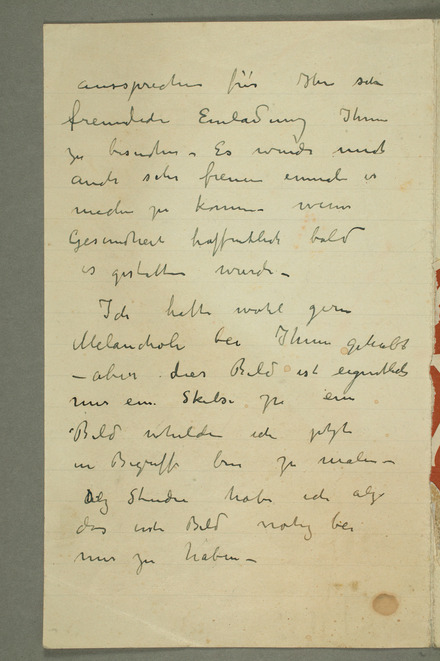 aussprechen für Ihre sehr
freundliche Einladung Ihnen
zu besuchen. Es wurde mich
auch sehr freuen einmal es
machen zu konnen wenn
Gesundheit hoffentlich bald
es gestatten wurde –
Ich hatte wohl gern
Melancholi bei Ihnen gehabt
– aber dies Bild ist eigentlich
nur ein Skitse zu ein
Bild ich jetzt
in Begriff bin zu malen –
Studie habe ich
das erste Bild notig bei
mir zu haben –